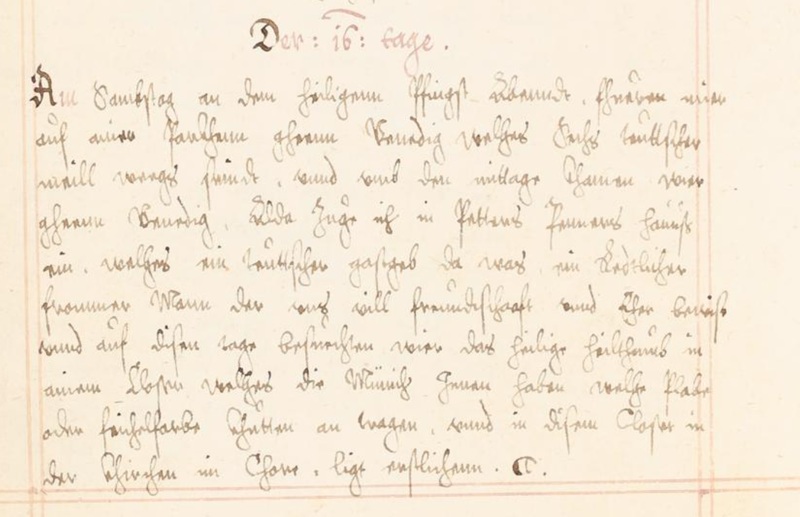 Der : 16 : tage .
Am Sambstag an dem heiligenn Pfingst Abenndt , fhueren mier
auf ainer Parkhenn gheenn Venedig welhes Sechs teuttscher
meill weegs seindt , vnnd vmb den mittage khamen wier
gheenn Venedig , Alda Zuge ich in Petters Penners hauss
ein , welhes ein teuttscher gastgeb da was , ein Redtlicher
frommer Mann der vns vill freundtschaafft vnnd Eher beweist
vnnd auf disen tage besuechten wier das heilige heilthumb in
ainem Closter welhes die Münich Innen haben welhe Plabe
oder feichelfarbe Khutten an tragen , vnnd in disem Closter in
der Khirchen im Chore , ligt erstlichenn . C .